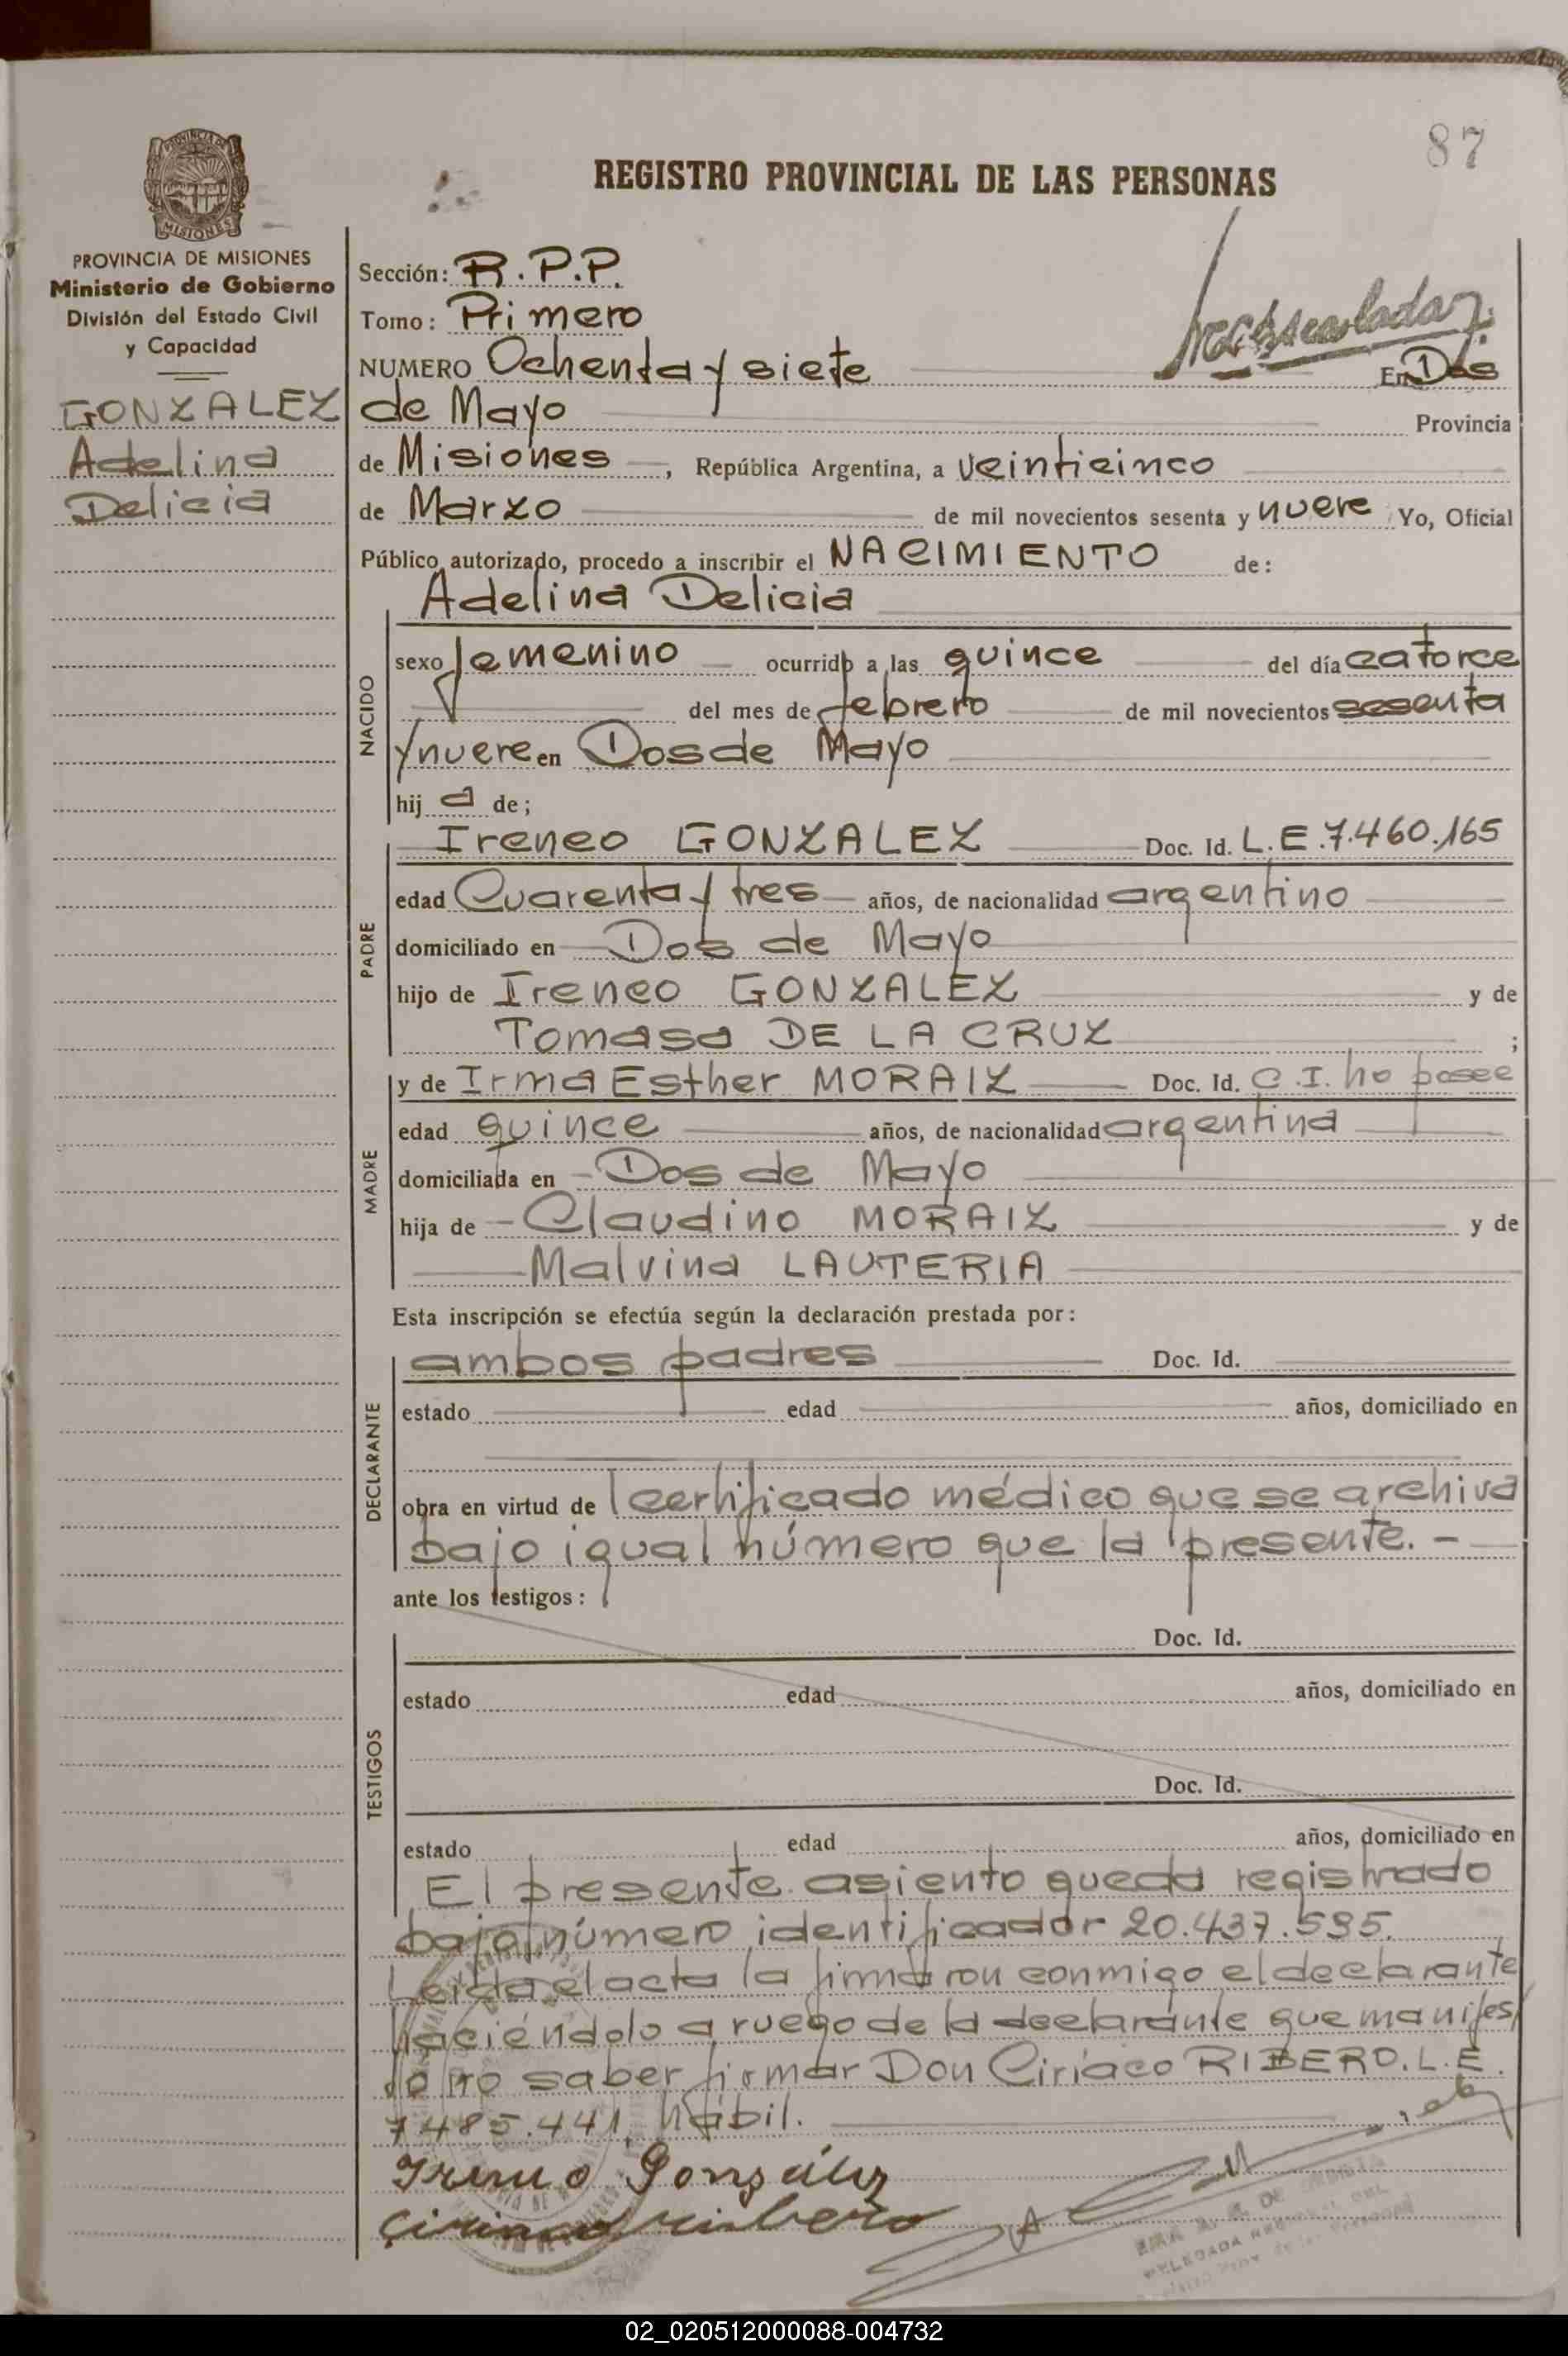 87
REGISTRO PROVINCIAL DE LAS PERSONAS
PROVINCIA DE
MISIONES
PROVINCIA DE MISIONES
Ministerio de Gobierno
División del Estado Civil
y Capacidad
GONZALEZ
Adelina
Delicia
Sección: R.P.P.
Tomo: Primero
NUMERO Ochenta y siete En Dos
de Mayo Provincia
de Misiones, República Argentina, a veinticinco
de Marzo de mil novecientos sesenta y nueve Yo, Oficial
Público autorizado, procedo a inscribir el NACIMIENTO de:
Adelina Delicia
NACIDO
sexo femenino ocurrido a las quince del día catorce
del mes de febrero de mil novecientos sesenta
y nueve en Dos de Mayo
hij a de;
Ireneo GONZALEZ Doc. Id. L.E.7.460.165
PADRE
edad Cuarenta y tres años, de nacionalidad argentino
domiciliado en Dos de Mayo
hijo de Ireneo GONZALEZ y de
Tomasa DE LA CRUZ ;
y de Irma Esther MORAIZ Doc. Id. C.I. no posee
MADRE
edad quince años, de nacionalidad argentina
domiciliada en Dos de Mayo
hija de Claudino MORAIZ y de
Malvina LAUTERIA
Esta inscripción se efectúa según la declaración prestada por:
ambos padres Doc. Id.
DECLARANTE
estado edad años, domiciliado en
obra en virtud de l certificado médico que se archiva
bajo igual número que la presente. -
ante los testigos:
TESTIGOS
Doc. Id.
estado edad años, domiciliado en
Doc. Id.
estado edad años, domiciliado en
El presente asiento queda registrado
bajo número identificador 20.437.595.
Leída el acta la firmaron conmigo el declarante
haciéndolo a ruego de la declarante que manifes
to no saber firmar Don Ciríaco RIBERO. L.E.
7.485.441, hábil.
Ireneo González
Ciriaco ribero
DELEGADA
02_020512000088-004732